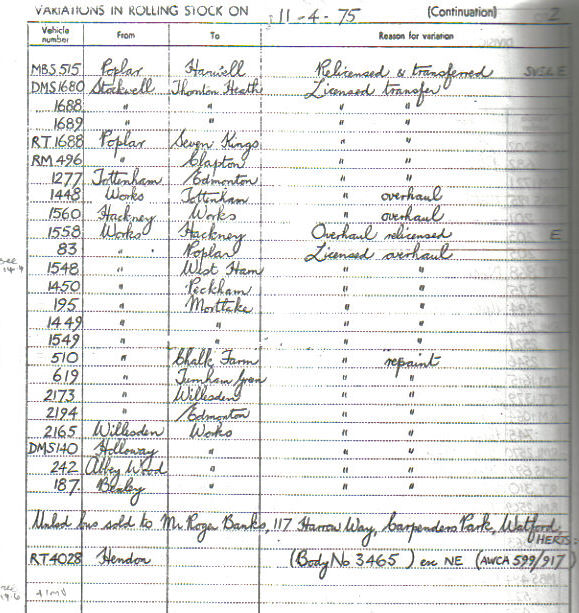 VARIATIONS IN ROLLING STOCK ON 11-4-75 (Continuation) 2
Vehicle number From To Reason for variation
MBS 515 Poplar Harwell Relicensed & transferred
DMS1680 Stockwell Thornton Heath Licensed transfer
1688 " " " "
1689 " " " "
RT 1688 Poplar Seven Kings " "
RM 496 " Clapton " "
1277 Tottenham Edmonton " "
1448 Works Tottenham " overhaul
1560 Hackney Works " overhaul
1558 Works Hackney Overhaul relicensed E
83 " Poplar Licensed overhaul
see 14.4 1548 " West Ham " "
1450 " Peckham " "
195 " Mortlake " "
1449 " " " "
1549 " " " "
510 " Chalk Farm " repaint
619 " Turnham Green " "
2173 " Willesden " "
2194 " Edmonton " "
2165 Willesden Works " "
DMS140 Holloway " " "
242 Abbey Wood " " "
187 Bexley " " "
Unlicd bus sold to Mr Roger Banks, 117 Harrow Way, Carpenders Park, Watford
HERTS:
RT4028 Hendon (Body No 3465) ex NE (AWCA 599/917)